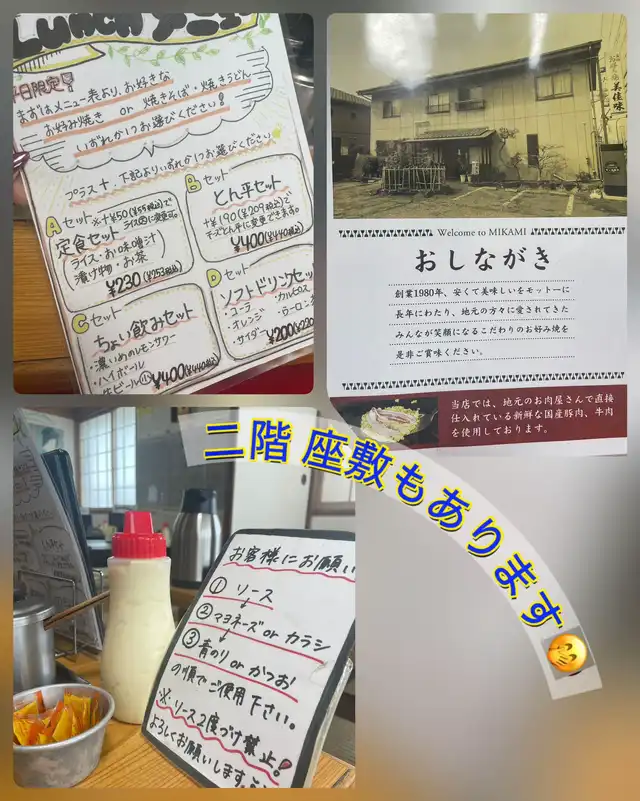 LUNCH メニュー
日限定
まずはメニュー表より、お好きな
お好み焼き or 焼きそば・焼きうどん
いずれか1つお選びください!
プラス+、下記よりいずれか1つお選びください
Aセット ※+¥50(¥55税込)で
定食セット
ライス・お味噌汁
漬け物・お茶
¥230(¥253税込)
Bセット
とん平セット
+¥190(¥209税込)で
チーズとん平に変更できます。
¥400(¥440税込)
Cセット
ちょい飲みセット
・濃いめのレモンサワー
・ハイボール
¥400(¥440税込)
Dセット
ソフトドリンクセット
・コーラ ・カルピス
・オレンジ ・ウーロン
・サイダー
¥200(¥220
美佳味
Welcome to MIKAMI
おしながき
創業1980年、安くて美味しいをモットーに
長年にわたり、地元の方々に愛されてきた
みんなが笑顔になるこだわりのお好み焼を
是非ご賞味ください。
当店では、地元のお肉屋さんで直接
仕入れている新鮮な国産豚肉、牛肉
を使用しております。
二階 座敷もあります
お客様にお願い
① ソース
② マヨネーズ or カラシ
③ 青のり or かつお
の順でご使用下さい。
※ソース2度づけ禁止!
よろしくお願いします。